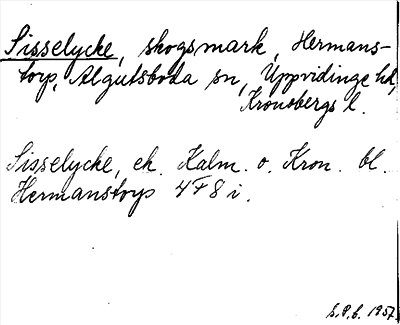 Sisselycke, skogsmark, Hermans-
torp, Algutsboda sn, Uppvidinge hd,
Kronobergs l.
Sisselycke, ek. Kalm. o. Kron. bl.
Hermanstorp 4F8i.
S.P.B. 1957